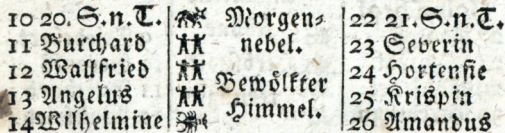 10 20. S. n. T.
11 Burchard
12 Wallfried
13 Angelus
14 Wilhelmine
Morgen-
nebel.
Bewölkter
Himmel.
22 21. S. n. T.
23 Severin
24 Hortensie
25 Krispin
26 Amandus